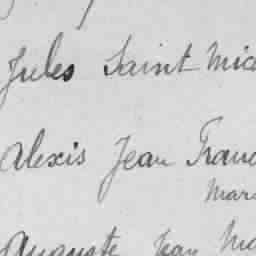 Jules Saint Mic
Alexis Jean Franc
Mar
Auguste Jean Ma